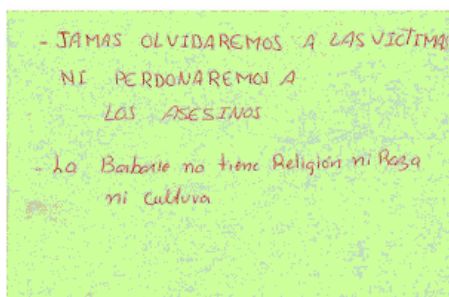 - JAMAS OLVIDAREMOS A LAS VICTIMAS
NI PERDONAREMOS A
LOS ASESINOS
- La Barbarie no tiene Religión ni Raza
ni cultura